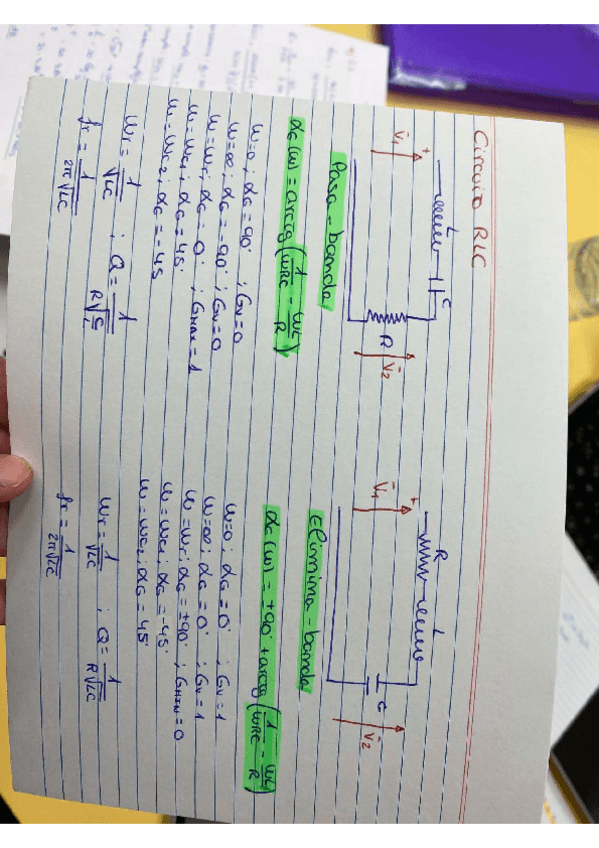 Circuito RLC
L C
+
V̄1
R
V̄2
Pasa-banda
αG(ω) = arctg(1/ωRC - ωL/R)
ω=0 ; αG=90° ; GV=0
ω=∞ ; αG=-90° ; GV=0
ω=ωr ; αG=0° ; GMAX=1
ω=ωC1 ; αG=45°
ω=ωC2 ; αG=-45
ωr = 1/√LC ; Q = 1/R√(C/L)
fr = 1/2π√LC
R L
+
V̄1
C
V̄2
Elimina-banda
αG(ω) = ±90° + arctg(1/ωRC - ωL/R)
ω=0 ; αG=0° ; GV=1
ω=∞ ; αG=0° ; GV=1
ω=ωr ; αG=±90° ; GMIN=0
ω=ωC1 ; αG=-45°
ω=ωC2 ; αG=45°
ωr = 1/√LC ; Q = 1/R√LC
fr = 1/2π√LC